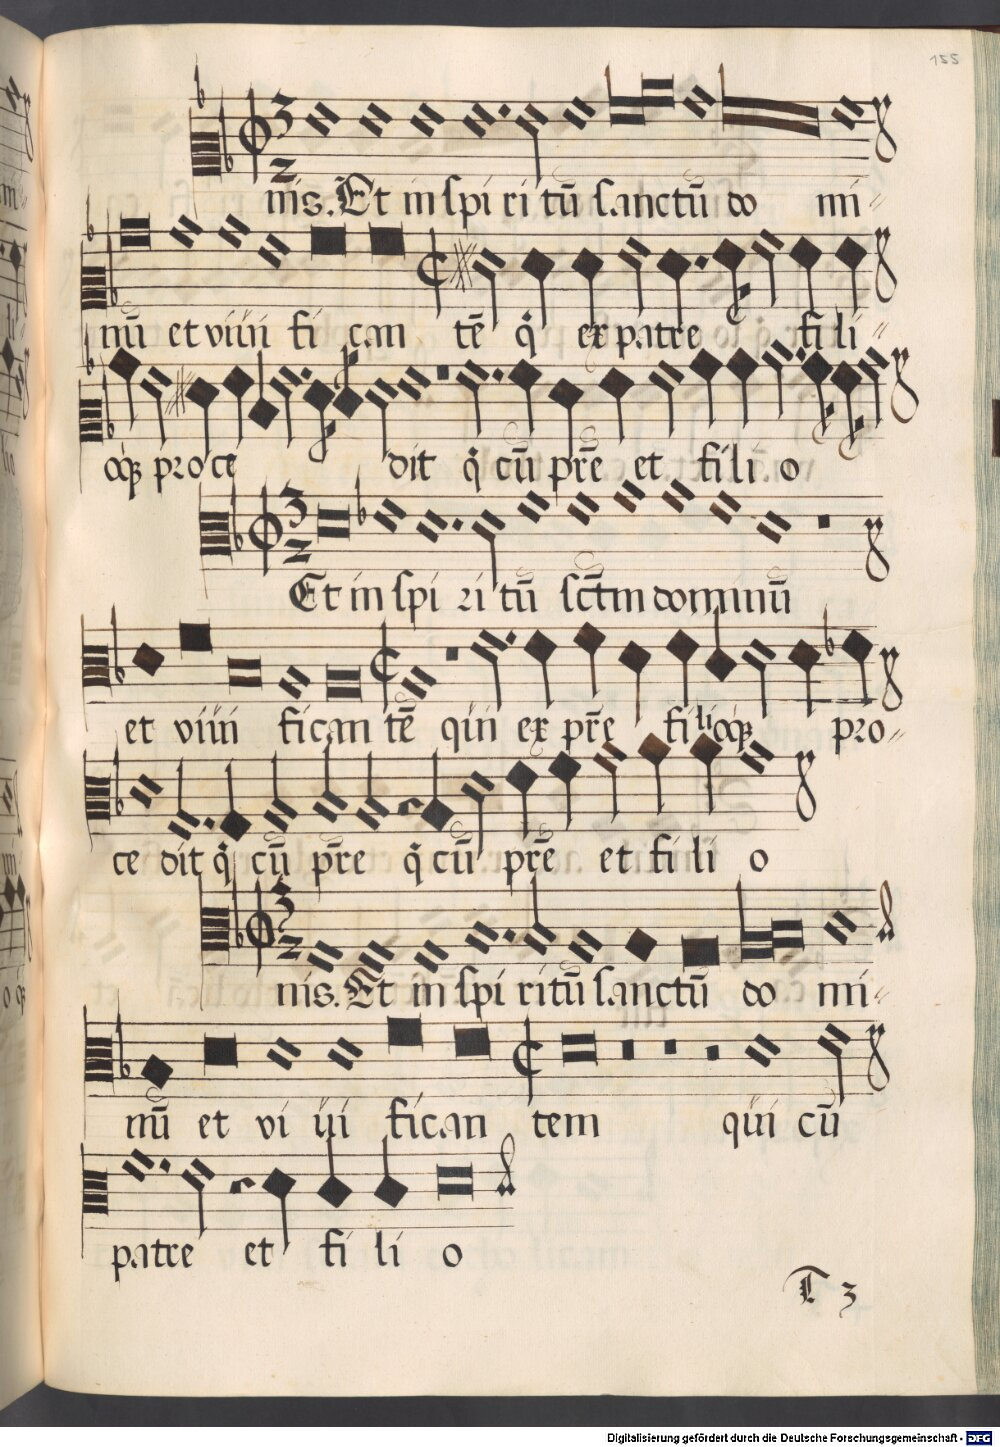 155
nis. Et in spi ri tū sanctū do mi
nū et viui fi can tē q̇ ex patre fi li
oq̇ꝫ pro ce dit q̇ cū pr̄e et fi li o
Et in spi ri tū sc̄tm dominū
et viui fi can tē qui ex pr̄e fi li oq̇ꝫ pro
ce dit q̇ cū pr̄e q̇ cū pr̄e et fi li o
nis. Et in spi ri tū sanctū do mi
nū et vi ui fi can tem qui cū
patre et fi li o
T 3
Digitalisierung gefördert durch die Deutsche Forschungsgemeinschaft - DFG